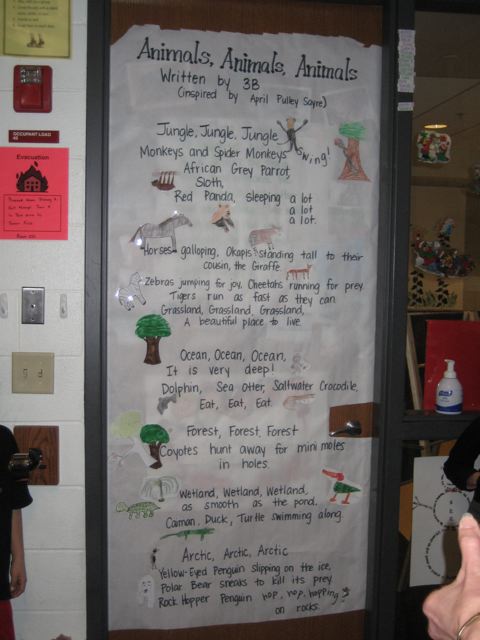 Animals, Animals, Animals
Written by 3B
(inspired by April Pulley Sayre)
Jungle, Jungle, Jungle
Monkeys and Spider Monkeys swing!
African Grey Parrot,
Sloth,
Red Panda, sleeping a lot
a lot
a lot.
Horses galloping, Okapis standing tall to their
cousin, the Giraffe.
Zebras jumping for joy, Cheetahs running for prey.
Tigers run as fast as they can.
Grassland, Grassland, Grassland,
A beautiful place to live.
Ocean, Ocean, Ocean,
It is very deep!
Dolphin, Sea Otter, Saltwater Crocodile,
Eat, Eat, Eat.
Forest, Forest, Forest
Coyotes hunt away for mini moles
in holes.
Wetland, Wetland, Wetland,
as smooth as the pond.
Caiman, Duck, Turtle swimming along.
Arctic, Arctic, Arctic
Yellow-Eyed Penguin slipping on the ice,
Polar Bear sneaks to kill its prey
Rock Hopper Penguin hop, hop, hopping
on rocks.
OCCUPANT LOAD
Evacuation